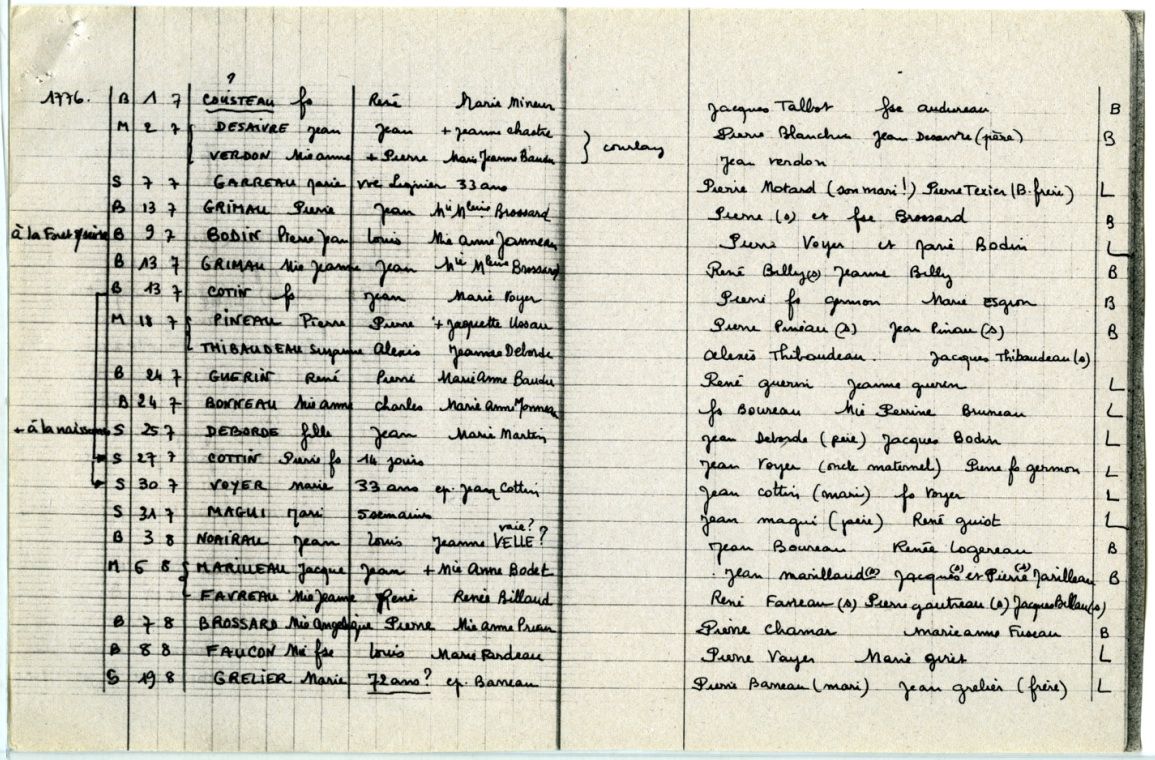 ?
1776. B 1 7 COUSTEAU fs René Marie Mineur Jacques Talbot fse audureau B
M 2 7 DESAIVRE Jean Jean + Jeanne chastre Pierre Blanchin Jean Desaivre (père) B
VERDON Mie anne + Pierre Marie Jeanne Baudu } courlay Jean verdon
S 7 7 GARREAU Marie vve Lignier 33 ans Pierre Motard (son mari!) Pierre Texier (B. frère) L
B 13 7 GRIMAU Pierre Jean Mie Mleine Brossard Pierre (s) et fse Brossard B
à la Foret B 9 7 BODIN Pierre Jean Louis Mie anne Janneau Pierre Voyer et Marie Bodin L
B 13 7 GRIMAU Mie Jeanne Jean Mie Mleine Brossard René Billy(s) Jeanne Billy B
B 13 7 COTIN fs Jean Marie Voyer Pierre fs germon Marie Esgron B
M 18 7 PINEAU Pierre Pierre + Jaquette Ussau Pierre Pineau (s) Jean Pinau (s) B
THIBAUDEAU Suzanne Alexis Jeanne Deborde alexis Thibaudeau. Jacques Thibaudeau (s)
B 24 7 GUERIN René Pierre Marie Anne Baudu René guerin Jeanne guerin L
B 24 7 BONNEAU Mie anne charles Marie Anne fs Boureau Mie Perrine Bruneau L
+ à la naissance S 25 7 DEBORDE fille Jean Marie Martin Jean Deborde (père) Jacques Bodin L
S 27 7 COTTIN Pierre fs 14 jours Jean Voyer (oncle maternel) Pierre fs germon L
S 30 7 VOYER Marie 33 ans ep. Jean Cottin Jean cottin (mari) fs Voyer L
S 31 7 MAGUI Marie 5 semaines Jean magui (père) René guiot L
vaie?
B 3 8 NOAIRAU Jean Louis Jeanne VELLE? Jean Boureau Renée Logereau B
M 6 8 MARILLEAU Jacque Jean + Mie Anne Bodet Jean marillaud(s) Jacques(s) et Pierre(s) Marilleau B
FAVREAU Mie Jeanne René Renée Billaud René Favreau (s) Pierre gautreau (s) Jacques Billau(s)
B 7 8 BROSSARD Mie Angelique Pierre Mie anne Prieur Pierre Chamar marie anne Fuseau B
B 8 8 FAUCON Mie fse Louis Marie Rardeau Pierre Voyer Marie giret L
S 19 8 GRELIER Marie 72 ans? ep. Barreau Pierre Barreau (mari) Jean grelier (frère) L